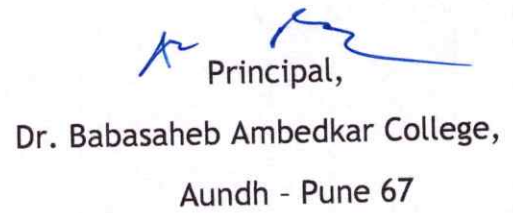 Principal,
Dr. Babasaheb Ambedkar College,
Aundh - Pune 67